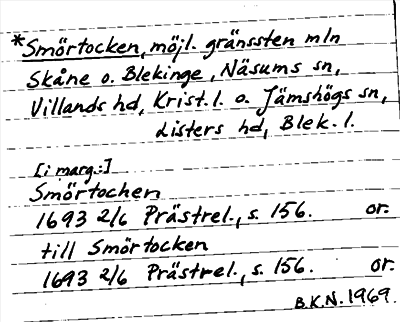 *Smörtocken, möjl. gränssten mln
Skåne o. Blekinge, Näsums sn,
Villands hd, Krist. l. o. Jämshögs sn,
Listers hd, Blek. l.
[i marg.:]
Smörtochen
1693 2/6 Prästrel., s. 156. or.
till Smörtocken
1693 2/6 Prästrel., s. 156. or.
B.K.N. 1969.